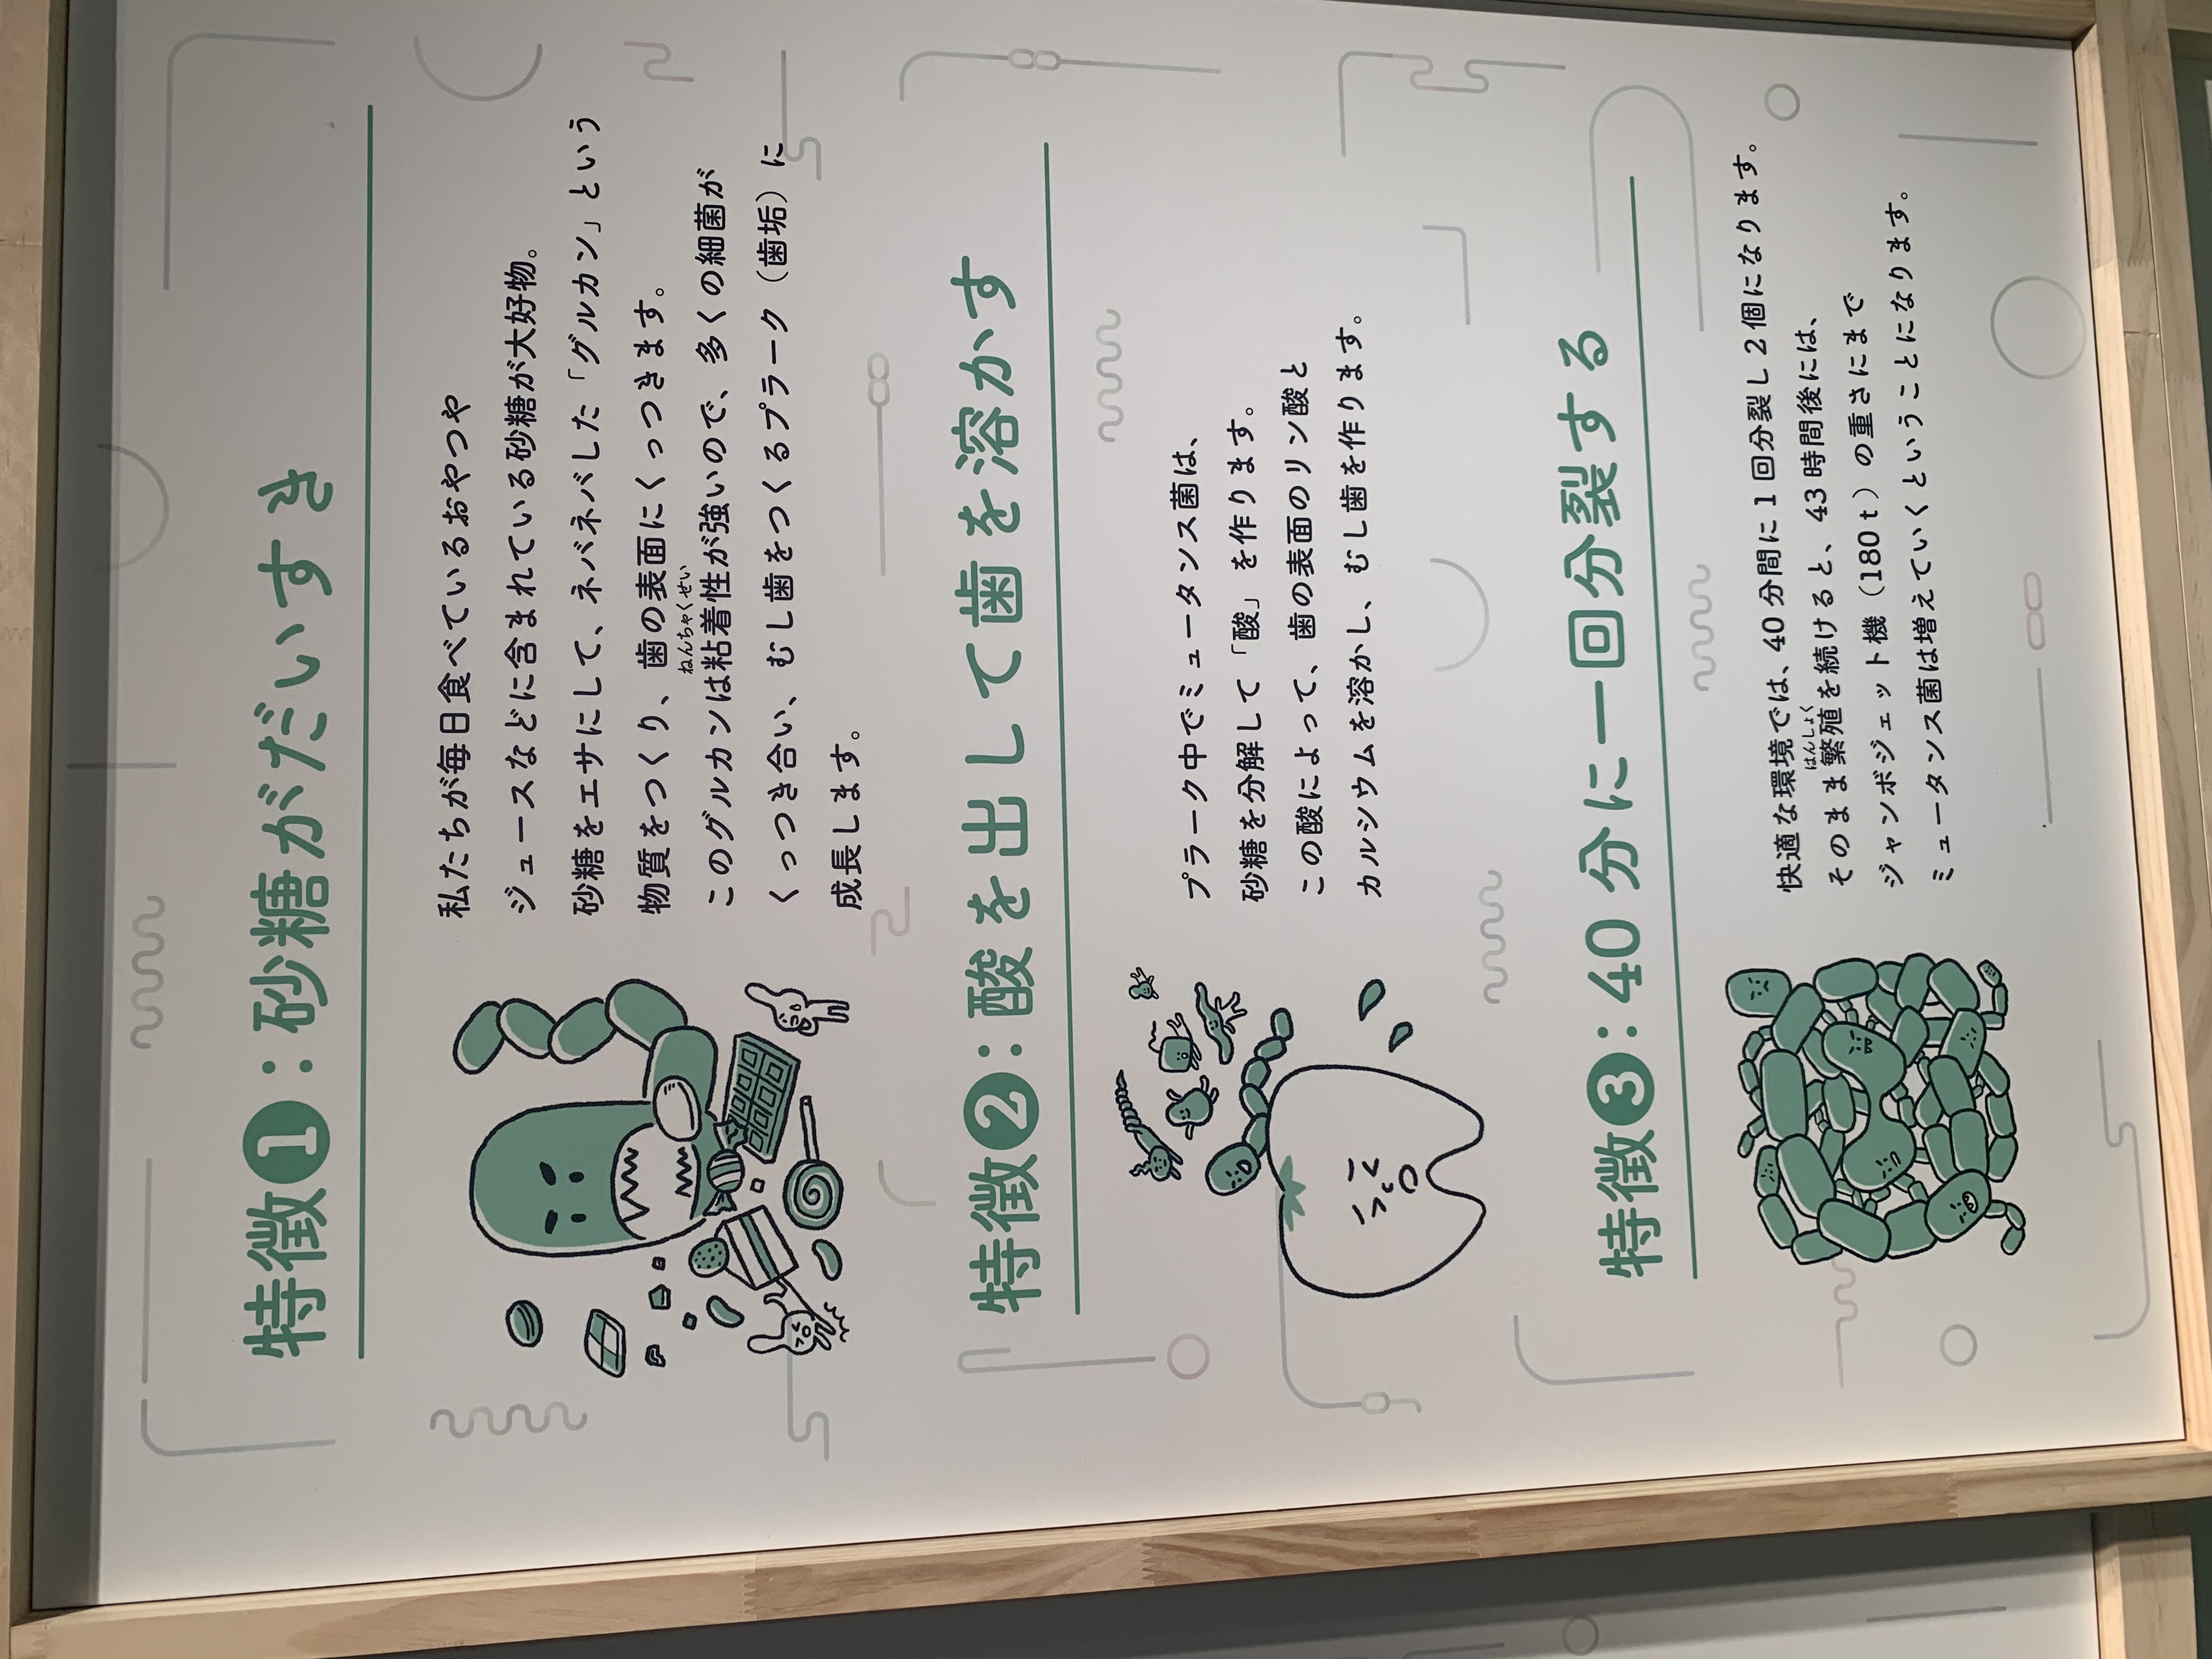 特徴❶：砂糖がだいすき
私たちが毎日食べているおやつや
ジュースなどに含まれている砂糖が大好物。
砂糖をエサにして、ネバネバした「グルカン」という
物質をつくり、歯の表面にくっつきます。
ねんちゃくせい
このグルカンは粘着性が強いので、多くの細菌が
くっつき合い、むし歯をつくるプラーク（歯垢）に
成長します。
特徴❷：酸を出して歯を溶かす
プラーク中でミュータンス菌は、
砂糖を分解して「酸」を作ります。
この酸によって、歯の表面のリン酸と
カルシウムを溶かし、むし歯を作ります。
特徴❸：40分に一回分裂する
快適な環境では、40分間に1回分裂し2個になります。
はんしょく
そのまま繁殖を続けると、43時間後には、
ジャンボジェット機（180t）の重さにまで
ミュータンス菌は増えていくということになります。